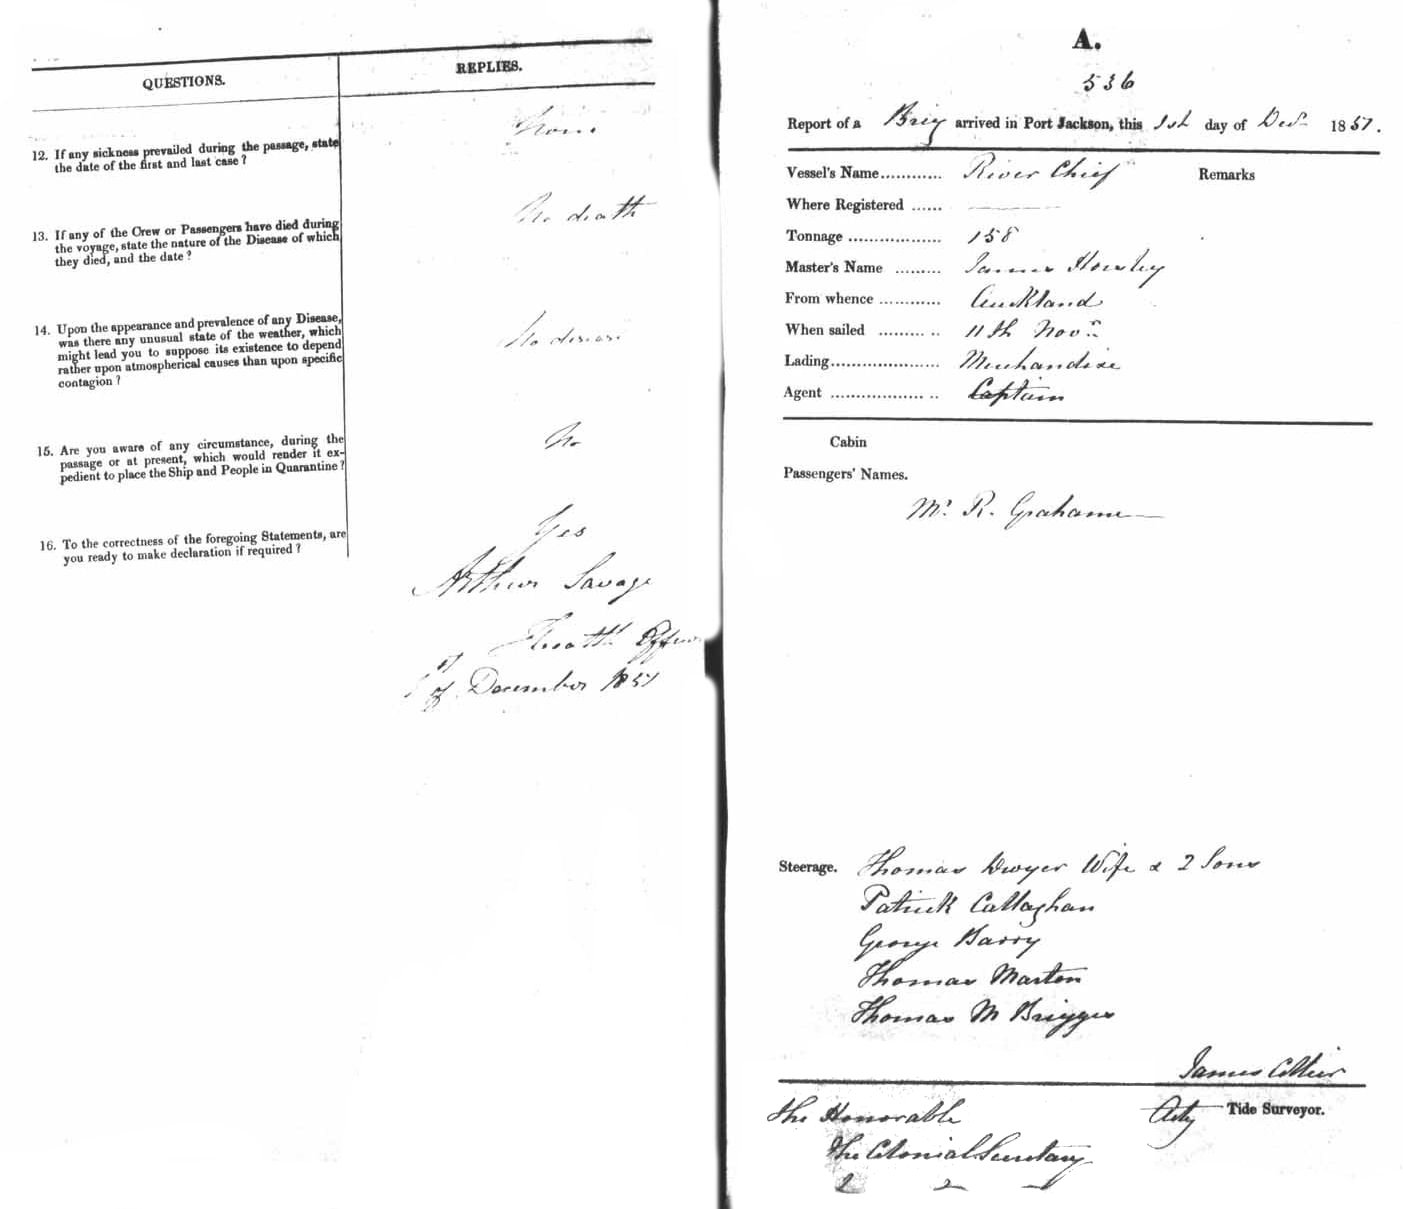 QUESTIONS.
REPLIES.
12. If any sickness prevailed during the passage, state
the date of the first and last case?
None
13. If any of the Crew or Passengers have died during
the voyage, state the nature of the Disease of which
they died, and the date?
No death
14. Upon the appearance and prevalence of any Disease,
was there any unusual state of the weather, which
might lead you to suppose its existence to depend
rather upon atmospherical causes than upon specific
contagion?
No disease
15. Are you aware of any circumstance, during the
passage or at present, which would render it ex-
pedient to place the Ship and People in Quarantine?
No
16. To the correctness of the foregoing Statements, are
you ready to make declaration if required?
Yes
Arthur Savage
Health Officer
of December 1851
A.
536
Report of a Brig arrived in Port Jackson, this 1st day of Decr 1851.
Vessel's Name............ River Chief Remarks
Where Registered ......
Tonnage .................. 158
Master's Name ......... James Howley
From whence ............ Auckland
When sailed ......... .. 11th Novr
Lading..................... Merchandise
Agent .................. .. Captain
Cabin
Passengers' Names.
Mr. R. Grahame
Steerage. Thomas Dwyer Wife & 2 Sons
Patrick Callaghan
George Barry
Thomas Marton
Thomas M Briggs
James Collier
Actg Tide Surveyor.
The Honorable
The Colonial Secretary